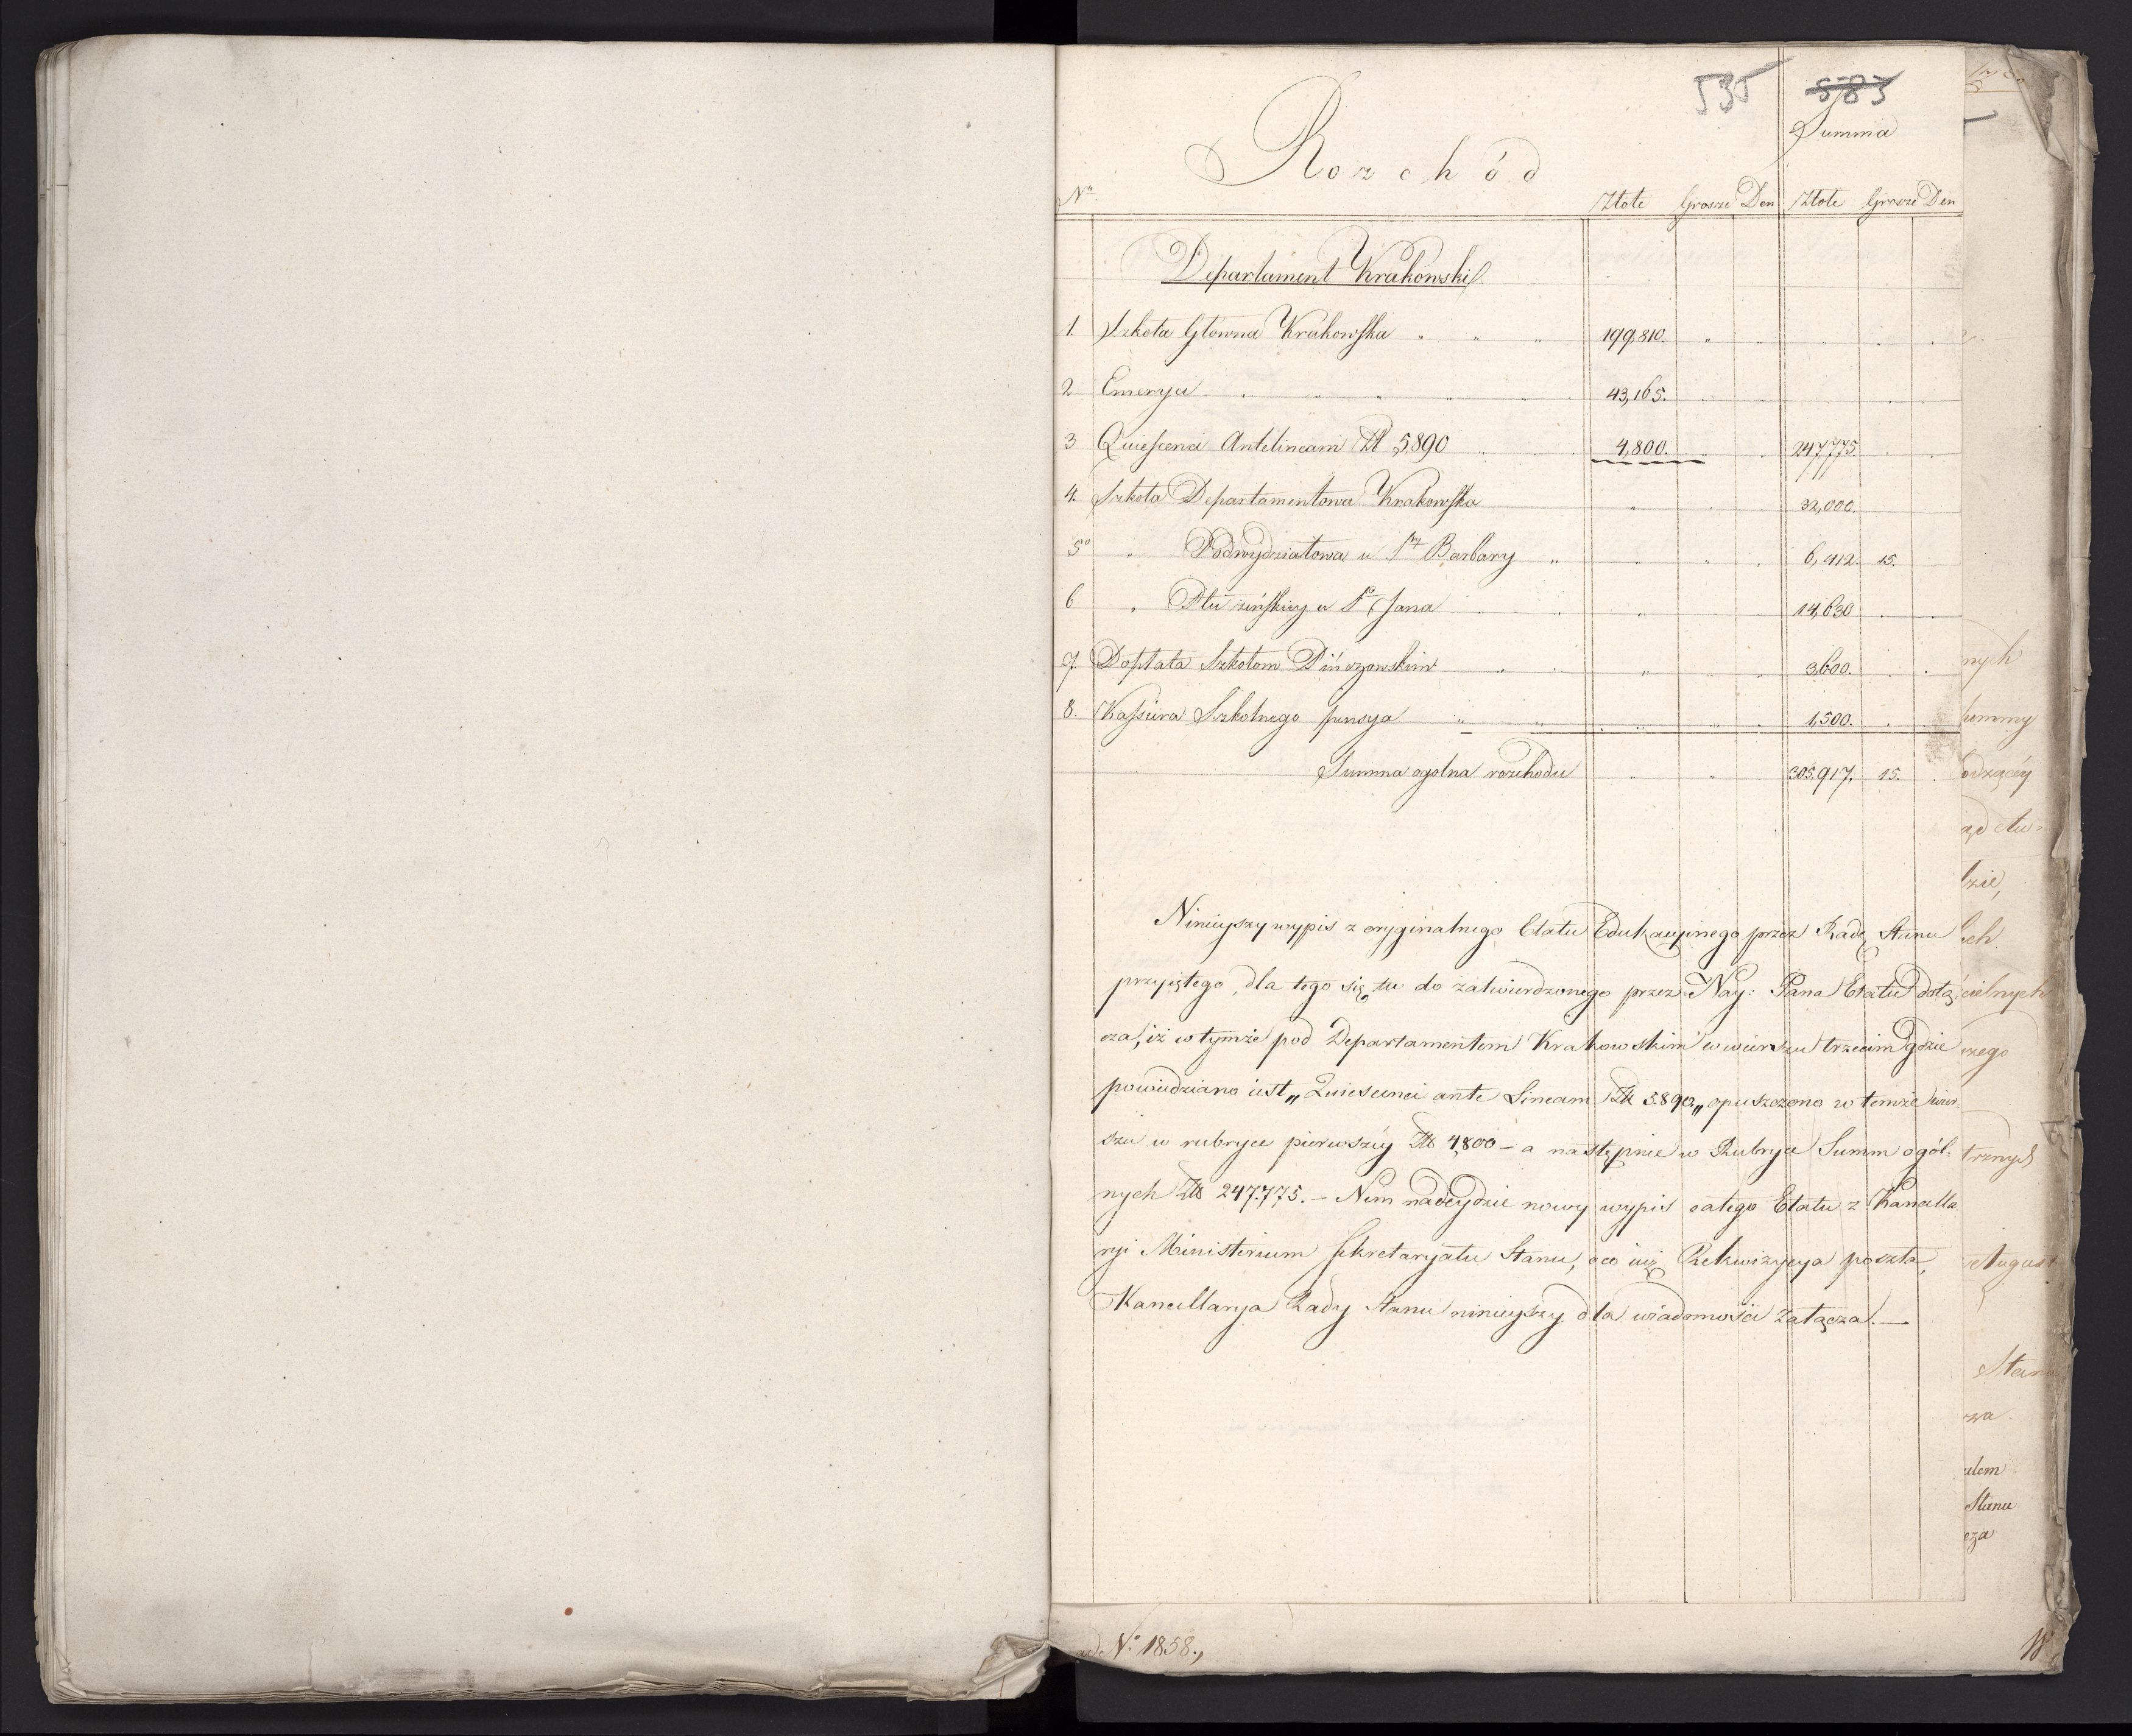 535 583
Summa
Rozchód
No Złote Grosze Den Złote Grosze Den
Departament Krakowski
1. Szkoła Główna Krakowska 199,810.
2 Emeryci 43,165.
3 Quiescenci Antelineam Zł 5,890 4,800. 247,775.
4. Szkoła Departamentowa Krakowska 32,000.
5o " Podwydziałowa u Barbary 6,412. 15.
6 " Płci żińskiey u S Jana 14,630
7. Dopłata Szkołom Pińczowskim 3,600.
8. Kassiera Szkolnego pensya 1,500.
Summa ogolna rozchodu 305,917. 15.
Ninieyszy wypis z oryginalnego Etatu Edukacyinego przez Radę Stanu
przyiętego, dla tego się tu do zatwierdzonego przez Nay: Pana Etatu dołą,
cza, iż w tymże pod Departamentem Krakowskim w wierszu trzecim gdzie
powiedziano iest „Quiescenci ante Lineam Zł 5.890„ opuszczono w temże wier-
szu w rubryce pierwszéy Złł 4,800 – a następnie w Rubryce Summ ogól-
nych Złł 247.775. – Nim nadeydzie nowy wypis całego Etatu z Kancella
ryi Ministerium Sekretaryatu Stanu, oco iuż Rekwizycya poszła,
Kancellarya Rady Stanu ninieyszy dla wiadomości załącza. —
nych
summy
odzącéy
dzie,
ych
cielnych
czego
trznych
August
Stanu
rwa.
Stanu
cza
ad No 1858.,